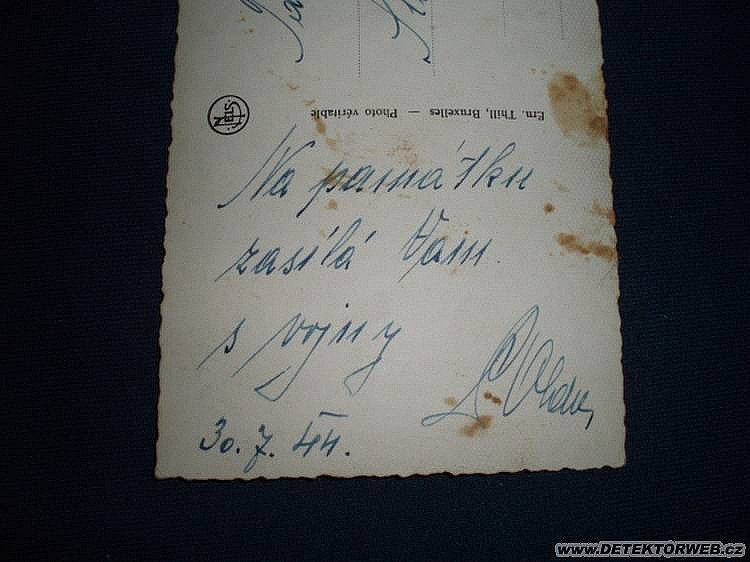 Ern. Thill, Bruxelles — Photo véritable
Na památku
zasílá Vám
s vojny
30. 7. 44.
www.DETEKTORWEB.cz